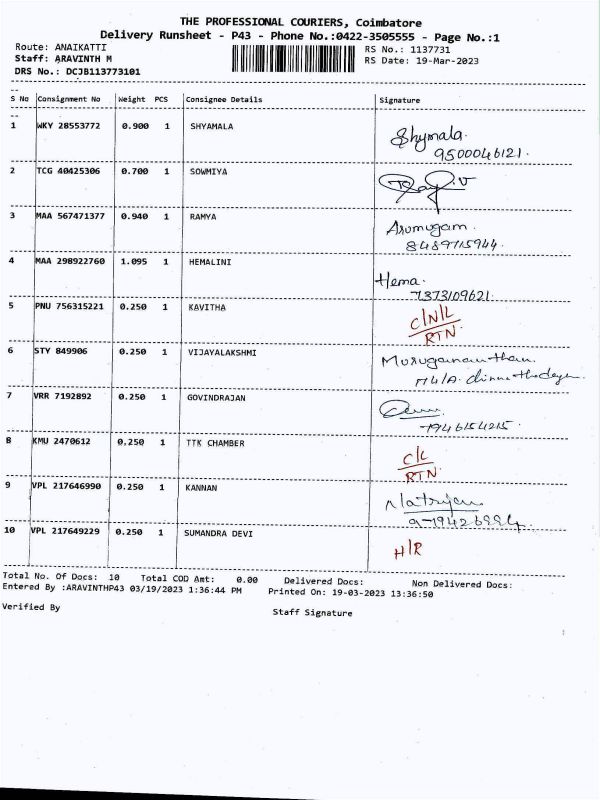 THE PROFESSIONAL COURIERS, Coimbatore
Delivery Runsheet - P43 - Phone No.:0422-3505555 - Page No.:1
Route: ANAIKATTI RS No.: 1137731
Staff: ARAVINTH M RS Date: 19-Mar-2023
DRS No.: DCJB113773101
S No Consignment No Weight PCS Consignee Details Signature
1 WKY 28553772 0.900 1 SHYAMALA Shymala.
9500046121.
2 TCG 40425306 0.700 1 SOWMIYA
3 MAA 567471377 0.940 1 RAMYA Arumugam.
8489715944.
4 MAA 298922760 1.095 1 HEMALINI Hema.
7373109621.
5 PNU 756315221 0.250 1 KAVITHA C/N/L
RTN
6 STY 849906 0.250 1 VIJAYALAKSHMI
7 VRR 7192892 0.250 1 GOVINDRAJAN
7946154215.
8 KMU 2470612 0.250 1 TTK CHAMBER C/L
RTN
9 VPL 217646990 0.250 1 KANNAN
10 VPL 217649229 0.250 1 SUMANDRA DEVI H/R
Total No. Of Docs: 10 Total COD Amt: 0.00 Delivered Docs: Non Delivered Docs:
Entered By :ARAVINTHP43 03/19/2023 1:36:44 PM Printed On: 19-03-2023 13:36:50
Verified By Staff Signature